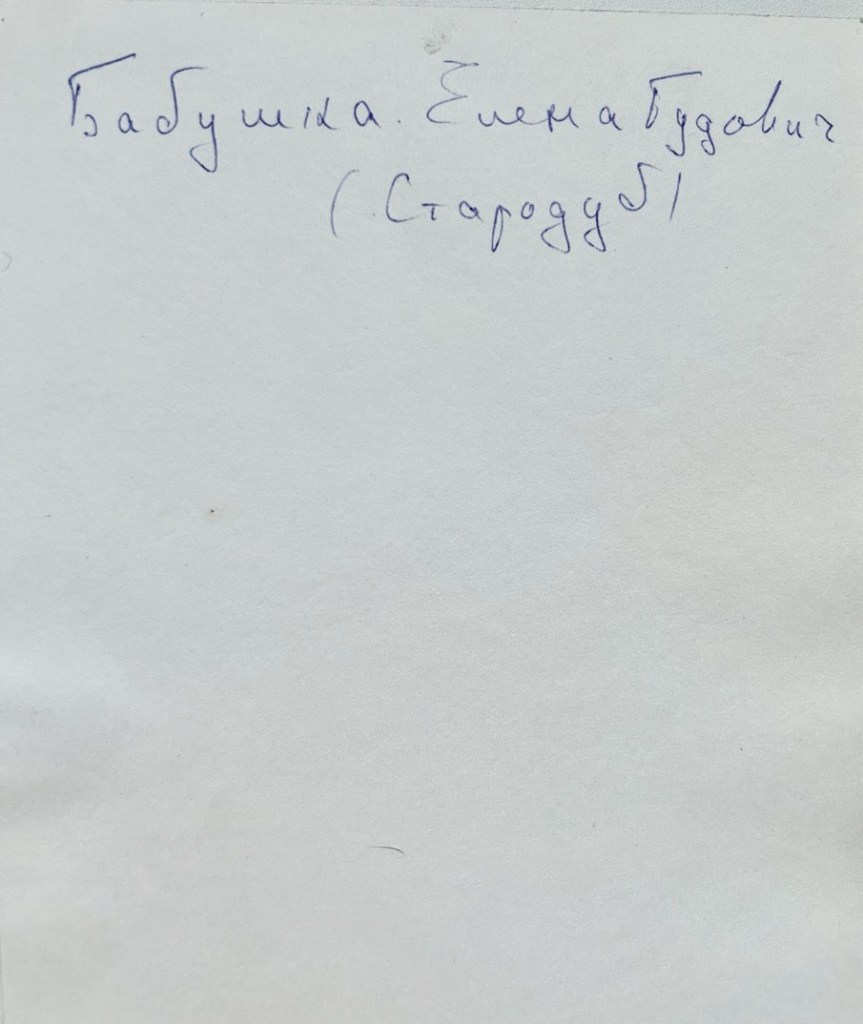 Бабушка. Елена Будович
(Стародуб)